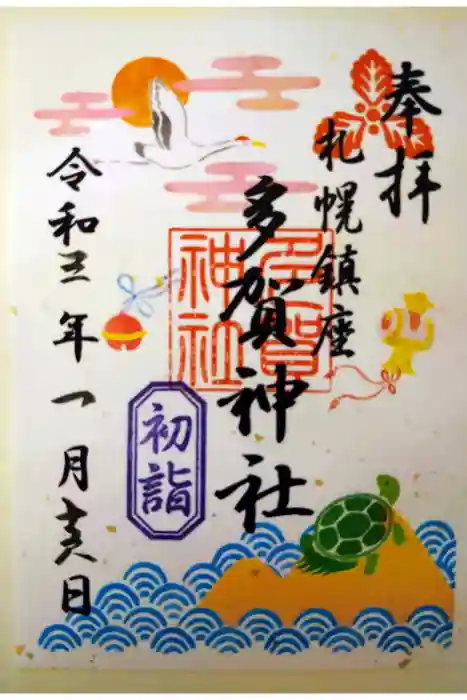 奉拝
札幌鎮座
多賀神社
多賀神社
初詣
令和三年一月十六日